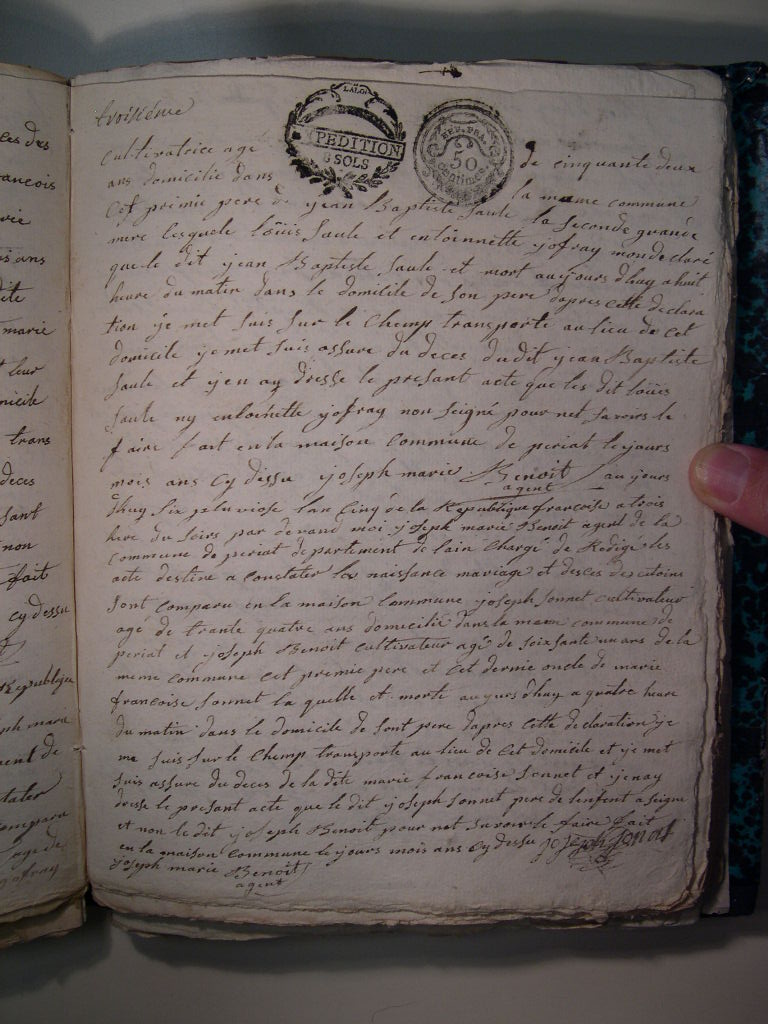 troisième
LALO
PEDITION
3 SOLS
REP. FRA.
50
centimes
Cultivatrice agé de cinquante deux
ans domicilié dans la meme commune
Cet premie pere de jean Baptiste saule la seconde grande
mere lesquele loüis saule et entoinnette jofray mon declaré
que le dit jean Baptiste saule et mort aujours dhuy a huit
heure du matin dans le domicile de son pere dapres cette declara
tion je met suis sur le Chemp transporte au lieu de cet
domicile je met suis assure du deces du dit jean Baptiste
saule et jen ay dresse le presant acte que les dit loüis
saule ny entoinette jofray non seigné pour net savoirs le
faire fait en la maison Commune de periat le jours
mois ans cy dessu joseph marie Benoit aujours
agent
dhuy six pluviose lan Cinq de la Republique francoise a trois
hure du soirs par devand moi joseph marie Benoit agent de la
Commune de periat departement de lain Chargé de Redigé les
acte destiné a Constater les naissance mariage et desces des citoins
sont Comparu en la maison Commune joseph sonnet cultivateur
agé de trante quatre ans domicilié dans la mem commune de
periat et joseph Benoit cultivateur agé de soixsante un ans de la
meme commune cet premie pere et cet dernie oncle de marie
francoise sonnet la quelle et morte aujours dhuy a quatre heure
du matin dans le domicile de sont pere dapres cette declaration je
me suis sur le Chemp transporte au lieu de cet domicile et je met
suis assure du deces de la dite marie francoise sonnet et jenay
dresse le presant acte que le dit joseph sonnet pere de lenfent a seigne
et non le dit joseph Benoit pour net savoir le faire fait
en la maison Commune le jours mois ans cy dessu joseph sonot
joseph marie Benoit
agent
ces des
ancois
vie
ans
dite
marie
leur
micile
trans
deces
sant
non
fait
cy dessu
Republique
ph marie
ment de
stater
compara
age de
jofray